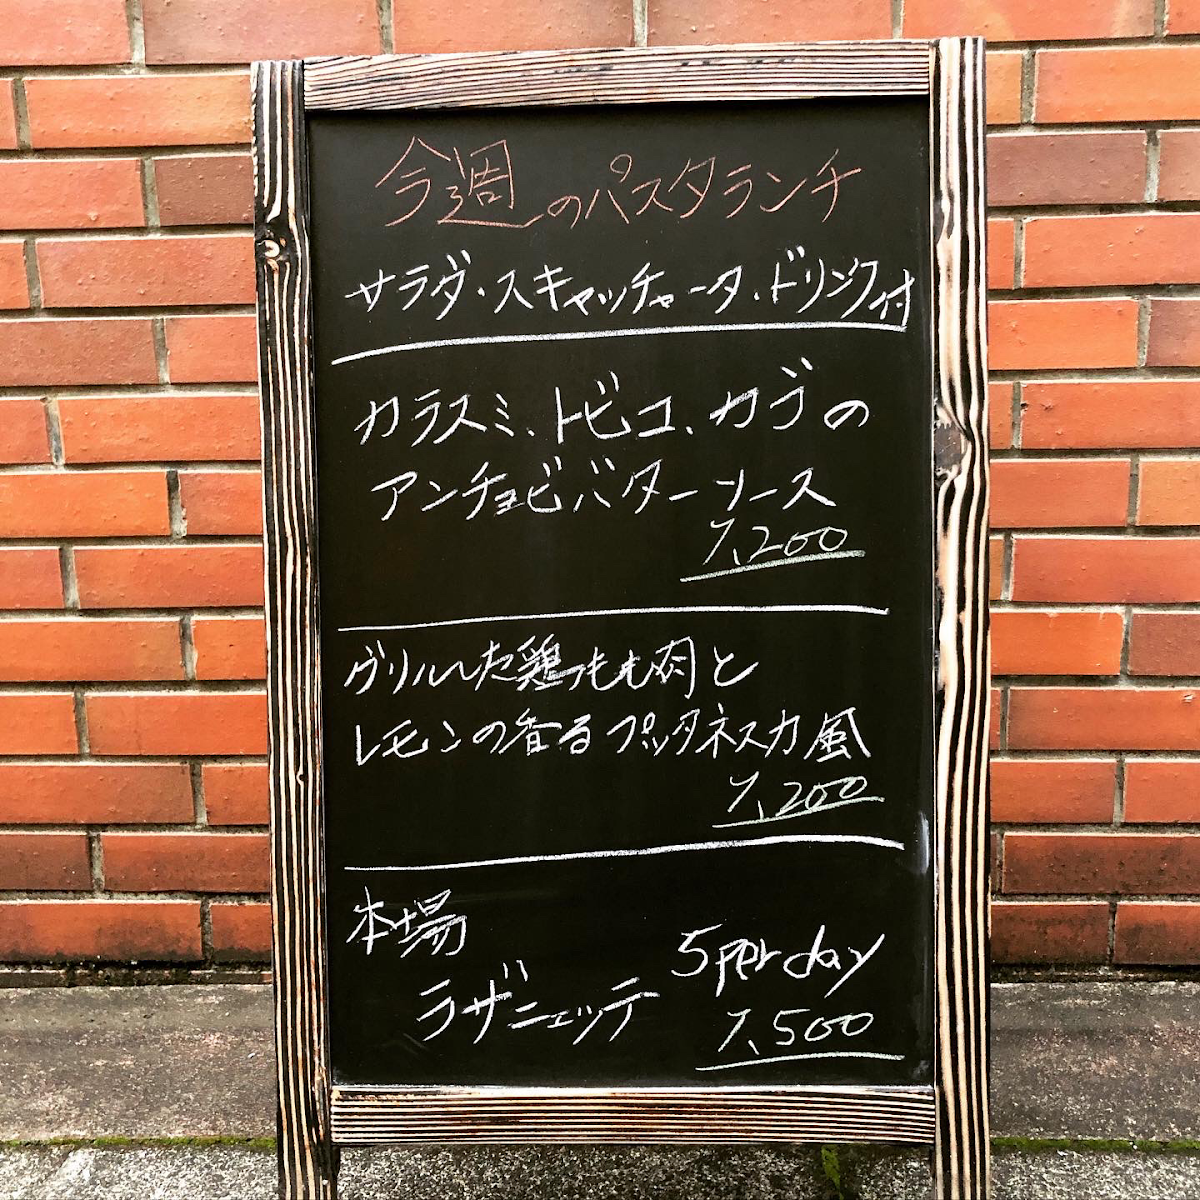 今週のパスタランチ
サラダ・スキャッチャータ・ドリンク付
カラスミ、トビコ、カブの
アンチョビバターソース
1,200
グリルした鶏もも肉と
レモンの香るプッタネスカ風
1,200
本場
ラザニェッテ
5 per day
1,500